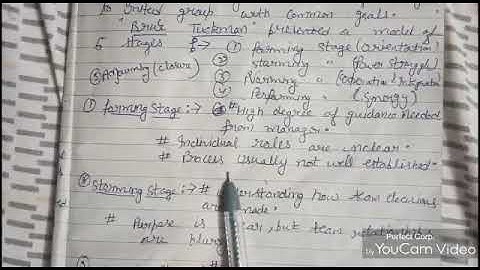 to United group with common goals.
"Bruce Tuckman" presented a model of
5 stages :→ ① forming stage (orientation)
⑤ Adjourning (closure) ② storming " (Power struggle)
③ Norming "
④ Performing " (Synergy)
① forming Stage :→ # High degree of guidance needed
from manager.
# Individual roles are unclear.
# Process usually not well established.
② Storming Stage :→ # understanding how team decisions
are made.
# Purpose is clear, but team relationships
are
Perfect Corp.
by YouCam Video